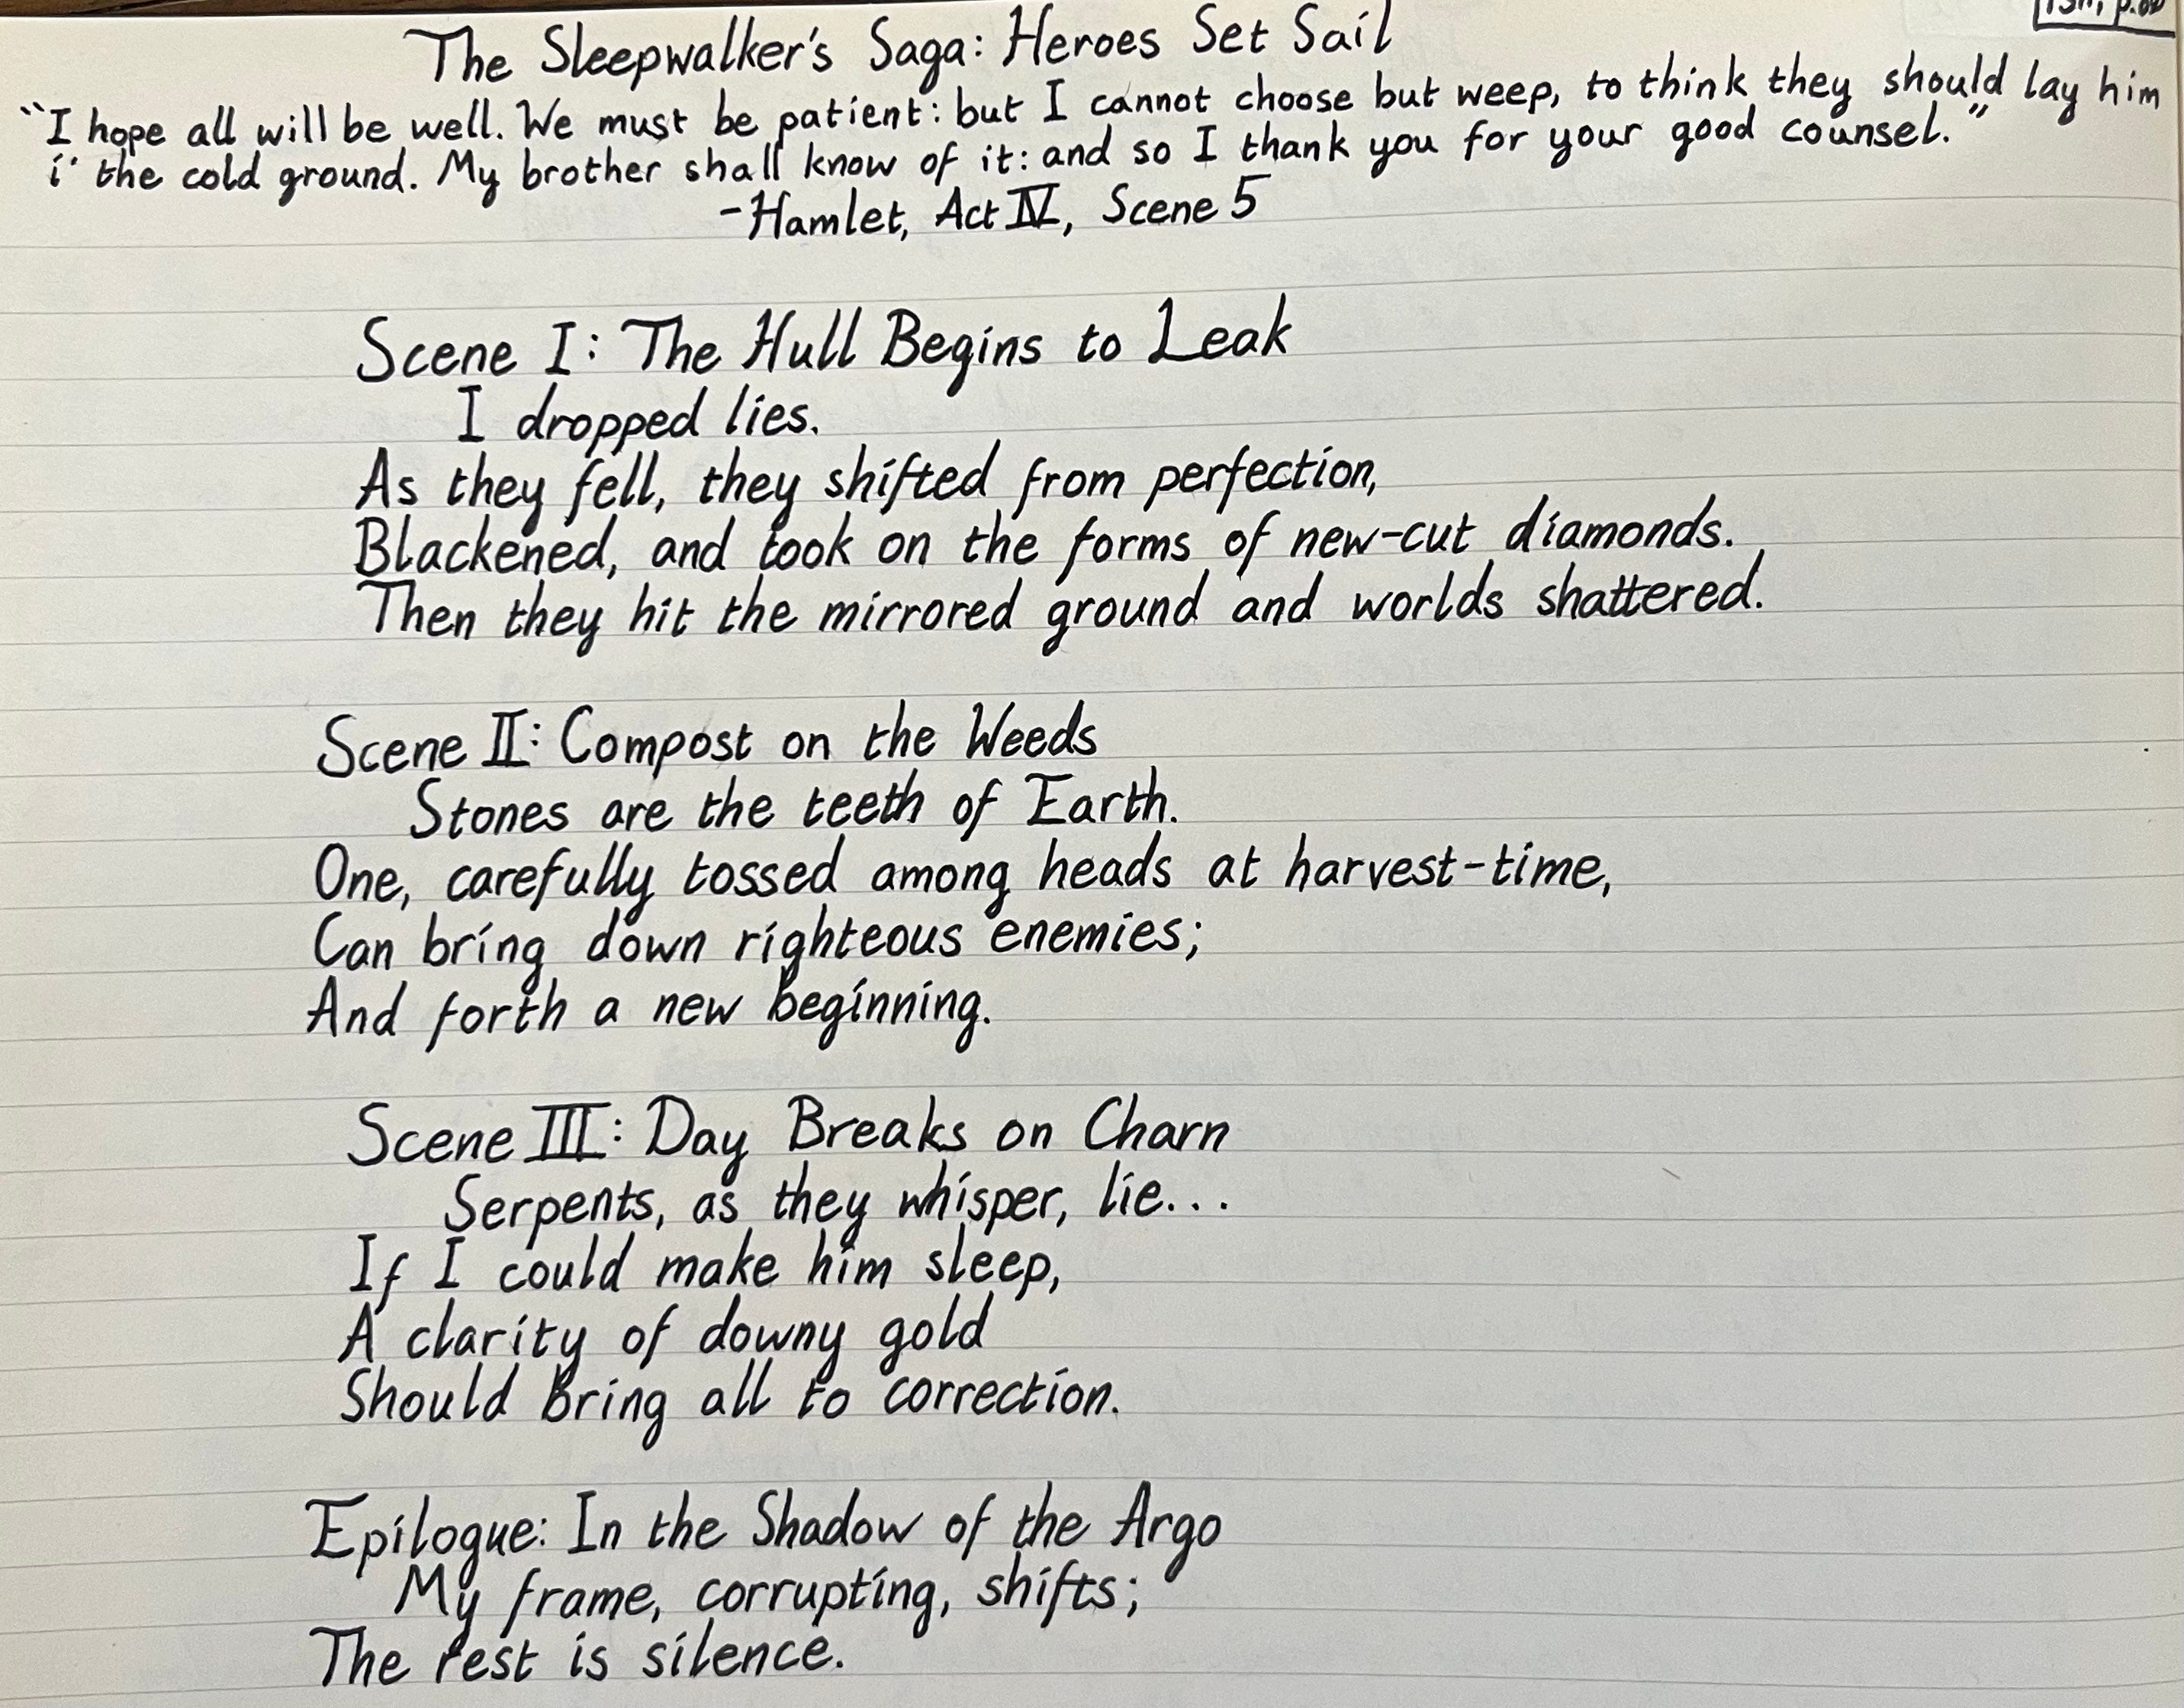 The Sleepwalker's Saga: Heroes Set Sail
"I hope all will be well. We must be patient: but I cannot choose but weep, to think they should lay him
i' the cold ground. My brother shall know of it: and so I thank you for your good counsel."
-Hamlet, Act IV, Scene 5
Scene I: The Hull Begins to Leak
I dropped lies.
As they fell, they shifted from perfection,
Blackened, and took on the forms of new-cut diamonds.
Then they hit the mirrored ground and worlds shattered.
Scene II: Compost on the Weeds
Stones are the teeth of Earth.
One, carefully tossed among heads at harvest-time,
Can bring down righteous enemies;
And forth a new beginning.
Scene III: Day Breaks on Charn
Serpents, as they whisper, lie...
If I could make him sleep,
A clarity of downy gold
Should bring all to correction.
Epilogue: In the Shadow of the Argo
My frame, corrupting, shifts;
The rest is silence.